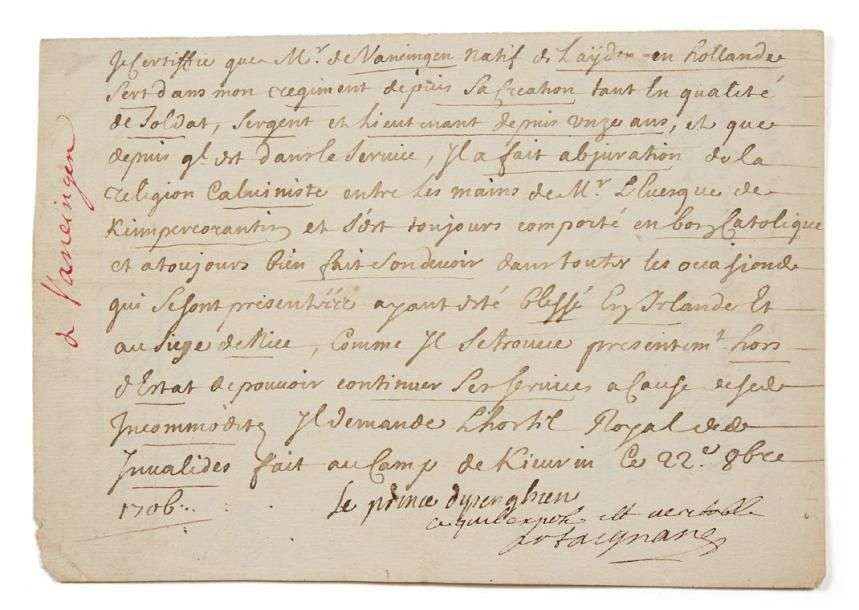 Je Certiffie que Mr. de Vaneingen natif de Layden en hollande
Sert dans mon regiment depuis Sa Creation tant En qualité
de Soldat, Sergent et Lieutenant depuis unze ans, et que
depuis ql est dans le Service, Jl a fait abjuration de la
religion Caluiniste entre les mains de Mr. L'Euesque de
Kimpercorantin et s'est toujours comporté en bon Catolique
et a toujours bien fait son devoir dans toutes les occasions
qui se sont presentées ayant esté blessé En Jrlande Et
au Siege de Nice, Comme Jl se trouve presentemt. hors
d'Estat de pouvoir continuer Ses Services a Cause de ses
Jncommodités Jl demande L'hostel Royal des
Jnvalides fait au Camp de Ce 22e. 8bre
1706.
Le prince dysenghien
est veritable
artaignan
de Vaneingen